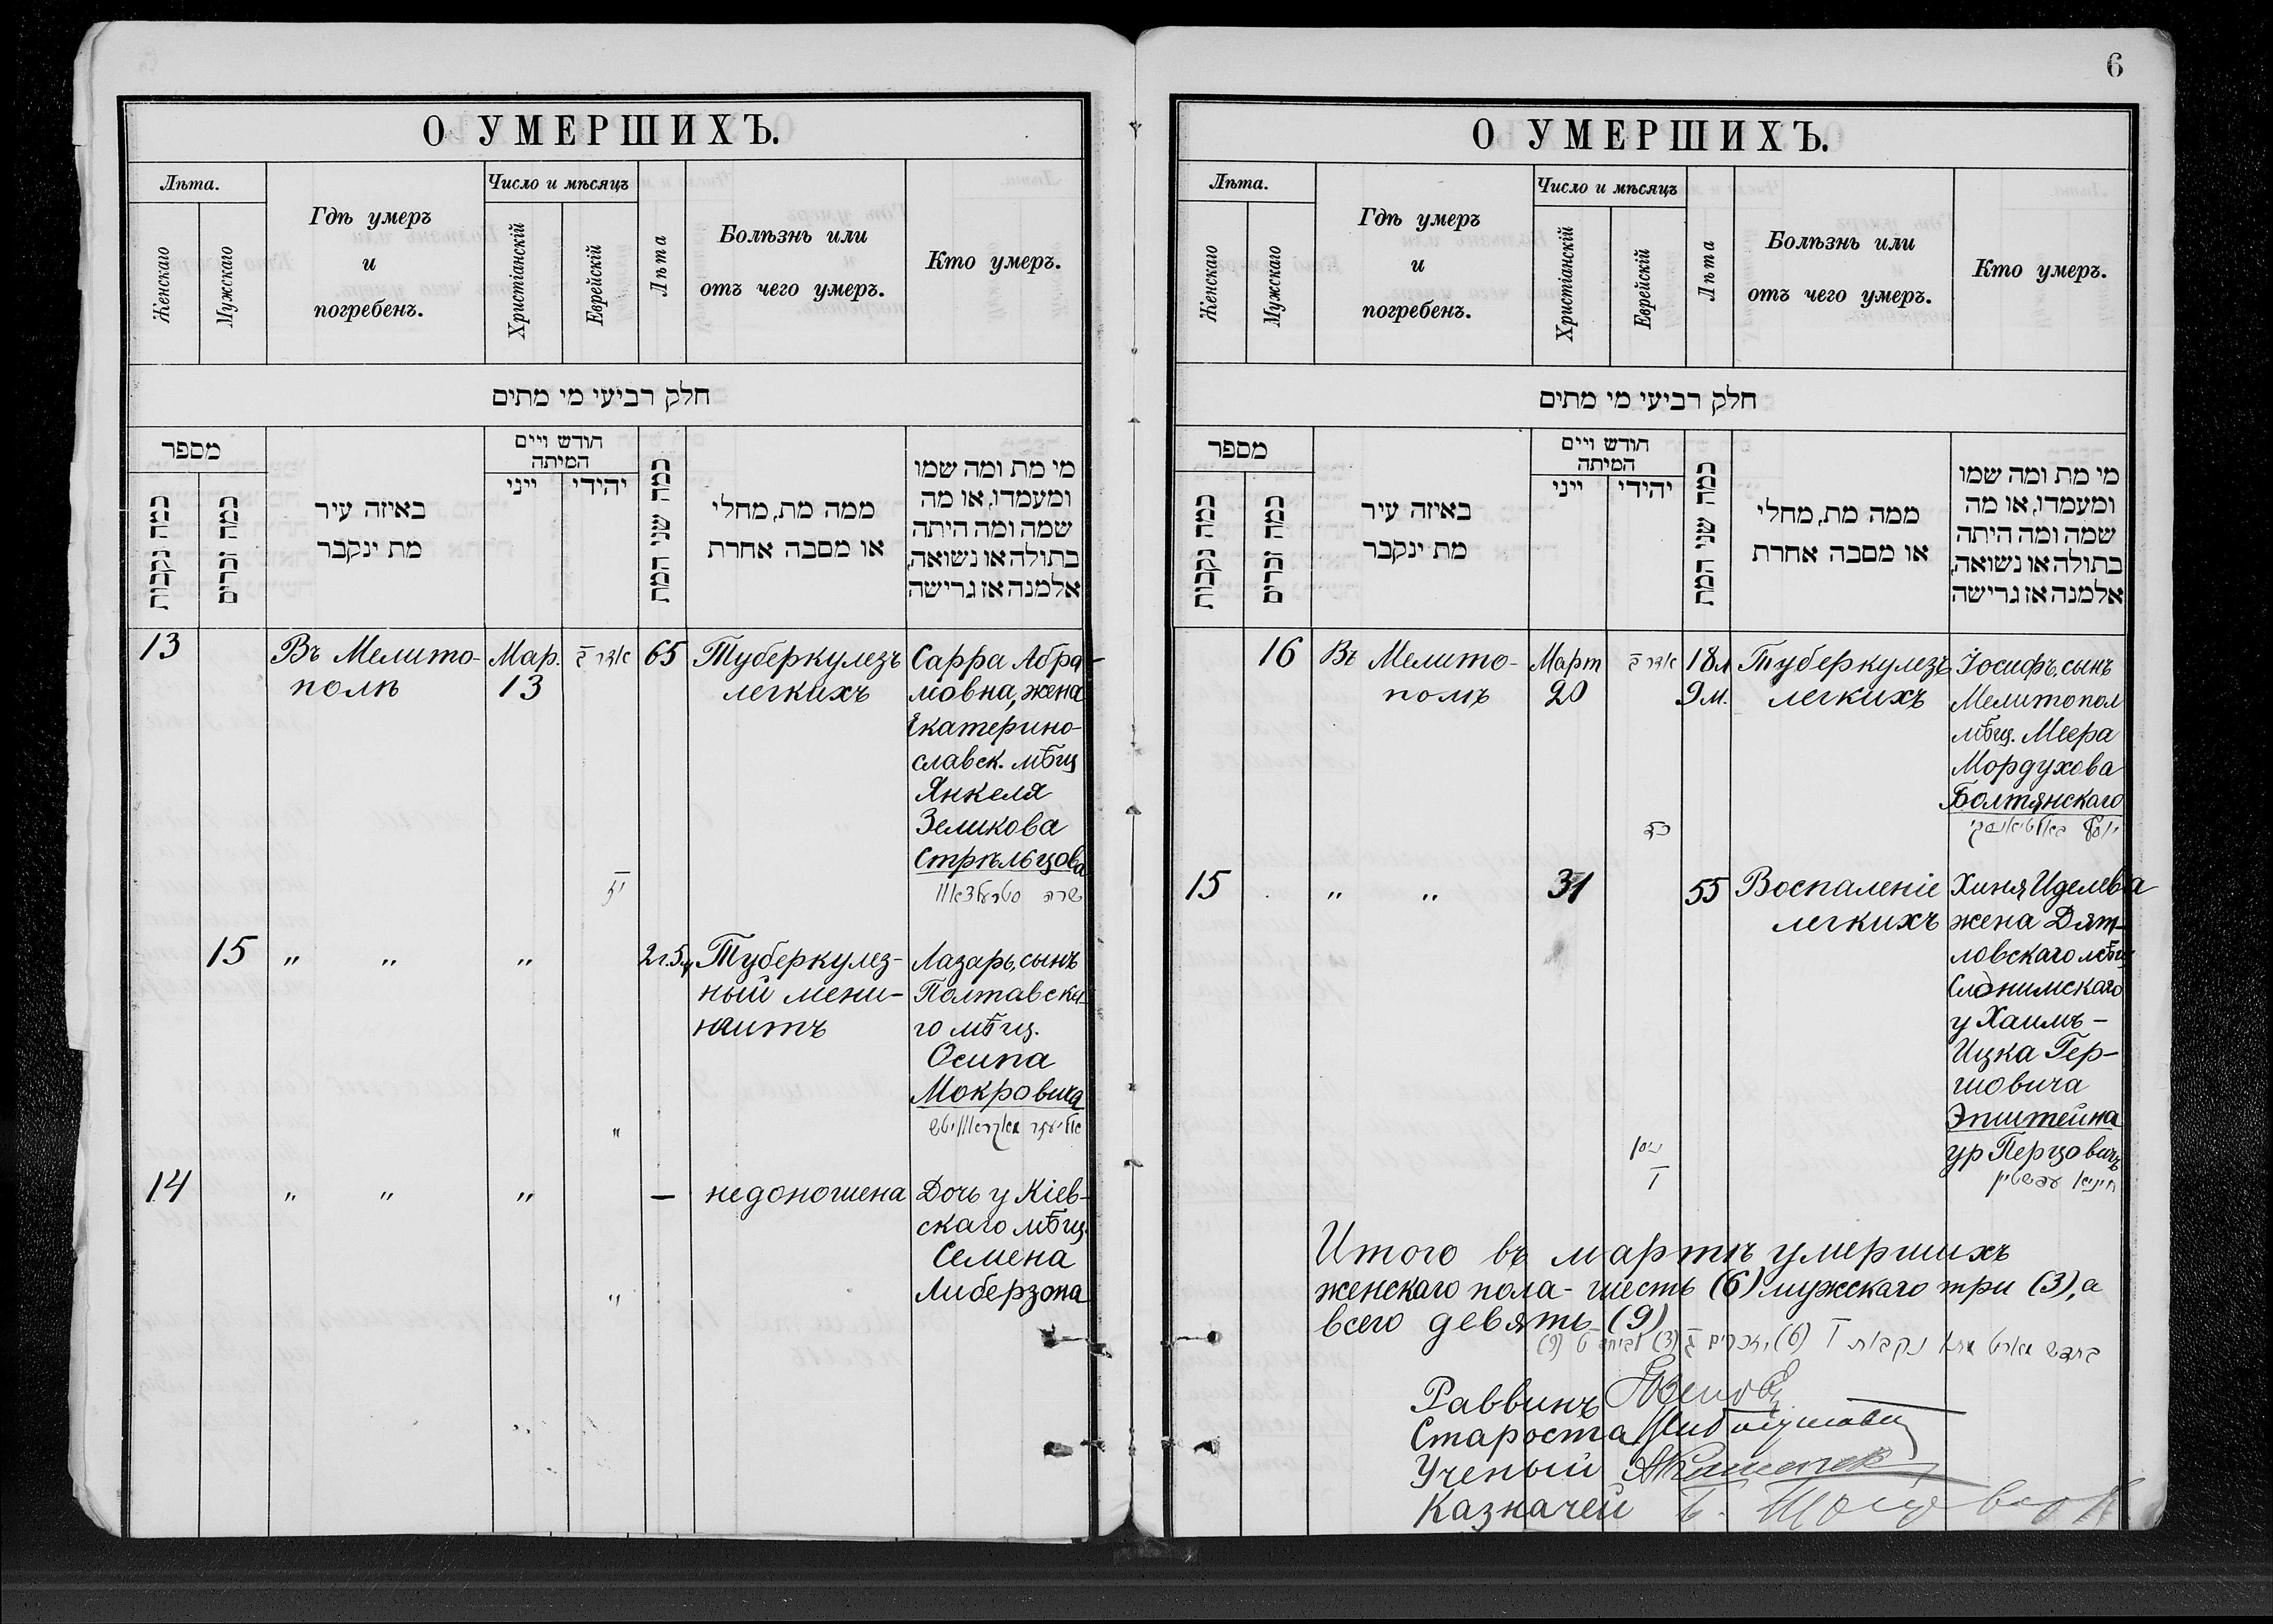 6
О УМЕРШИХЪ.
Лѣта.
Женскаго
Мужскаго
Гдѣ умеръ
и
погребенъ.
Число и мѣсяцъ
Христіанскій
Еврейскій
Лѣта
Болѣзнь или
отъ чего умеръ.
Кто умеръ.
חלק רביעי מי מתים
מספר
כמה נקבות
כמה זכרים
באיזה עיר
מת ינקבר
חודש ויים
המיתה
ייני
יהידי
כמה שני המת
ממה מת, מחלי
או מסבה אחרת
מי מת ומה שמו
ומעמדו, או מה
שמה ומה היתה
בתולה או נשואה,
אלמנה אז גרישה
13
Въ Мелито-
полѣ
Мар.
13
65
Туберкулезъ
легкихъ
Сарра Абра-
мовна, жена
Екатерино-
славск. мѣщ
Янкеля
Зеликова
Стрѣльцова
15
" "
"
2г.5м
Туберкулез-
ный мени-
нгитъ
Лазарь, сынъ
Полтавска-
го мѣщ.
Осипа
Мокровича
"
14
" "
"
—
недоношена
Дочь у Кіев-
скаго мѣщ.
Семена
Либерзона
"
О УМЕРШИХЪ.
Лѣта.
Женскаго
Мужскаго
Гдѣ умеръ
и
погребенъ.
Число и мѣсяцъ
Христіанскій
Еврейскій
Лѣта
Болѣзнь или
отъ чего умеръ.
Кто умеръ.
חלק רביעי מי מתים
מספר
כמה נקבות
כמה זכרים
באיזה עיר
מת ינקבר
חודש ויים
המיתה
ייני
יהידי
כמה שני המת
ממה מת, מחלי
או מסבה אחרת
מי מת ומה שמו
ומעמדו, או מה
שמה ומה היתה
בתולה או נשואה,
אלמנה אז גרישה
16
Въ Мелито-
полѣ
Март
20
18л
9м.
Туберкулезъ
легкихъ
Іосифъ, сынъ
Мелитопол
мѣщ. Меера
Мордухова
Болтянскаго
15
" "
31
55
Воспаленіе
легкихъ
Хиня Иделева
жена Дят-
ловскаго мѣщ
Слонимскаго
у Хаимъ-
Ицка Гер-
шовича
Эпштейна
ур Перцовичъ
Итого въ мартѣ умершихъ
женскаго пола - шесть (6) мужскаго три (3), а
всего девять (9)
Раввинъ
Староста
Ученый
Казначей